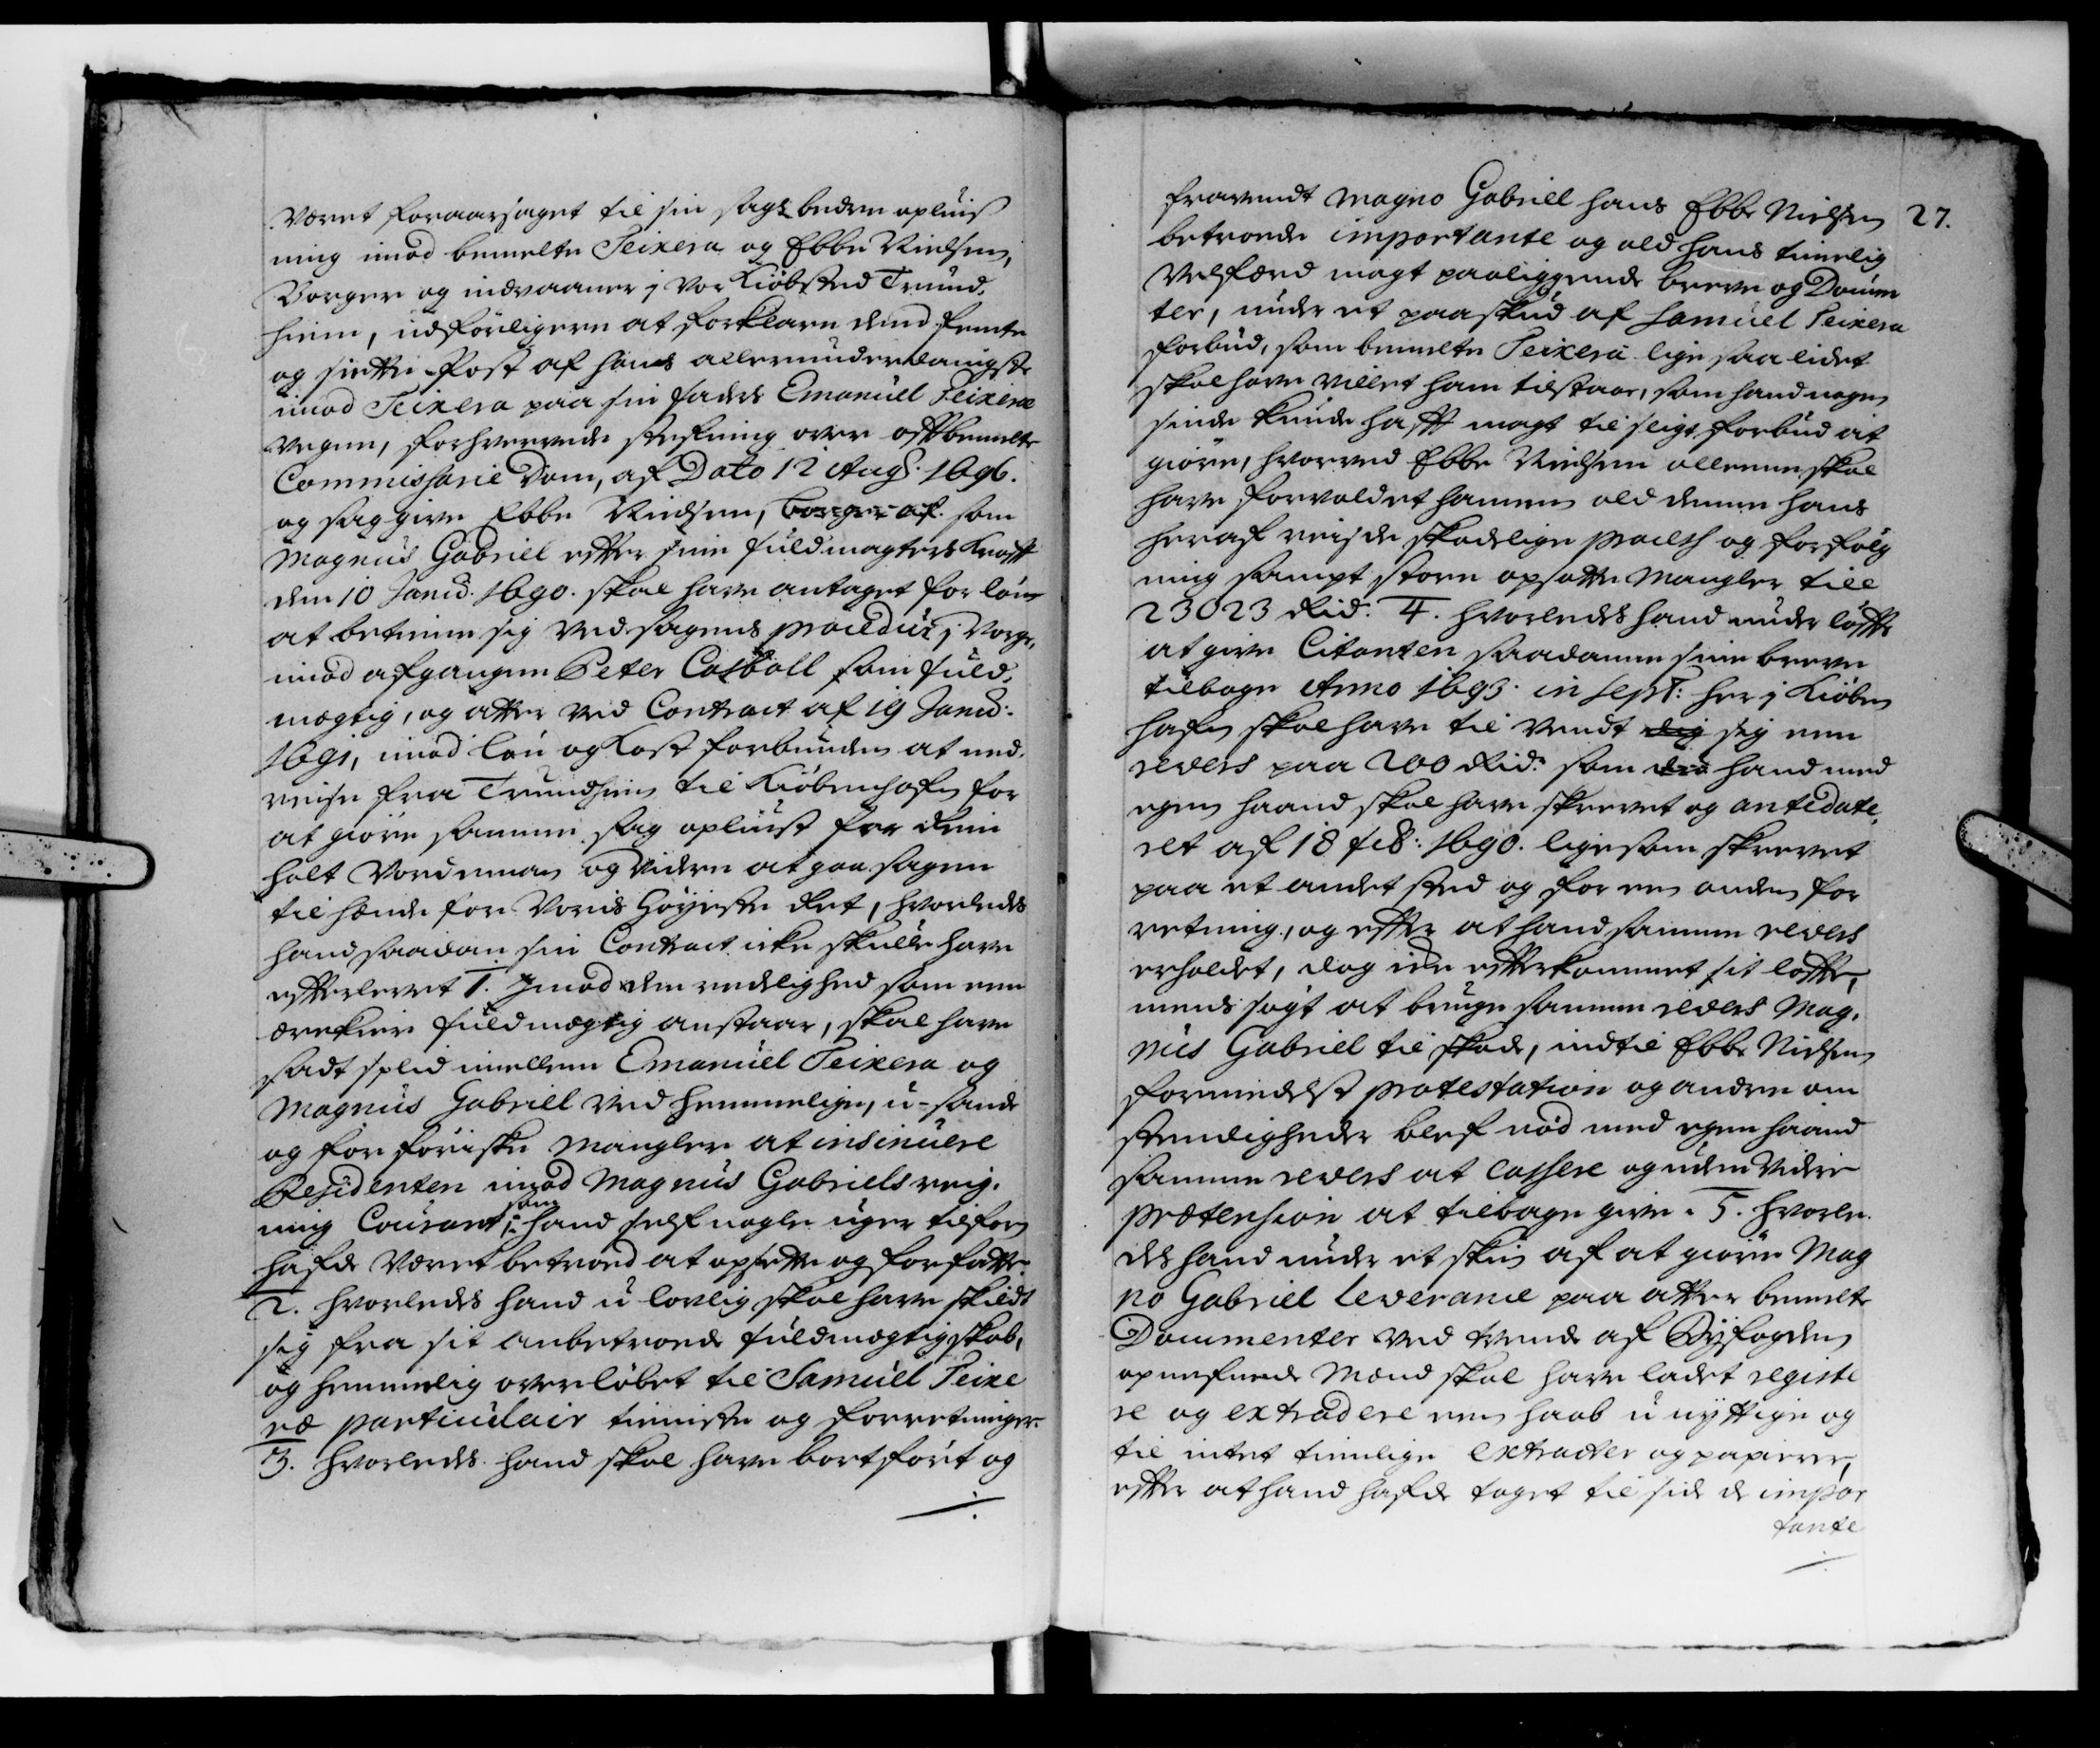 Været foraarsaget til sin sags bedre opluis
ning imod bemelte Teixera og Ebbe Nielsen,
Borger og indvaaner i Vor Kiøbsted Trund,
hiem, udførligere at forklare dend femte
og siette Post af hans allerunderdanigste
imod Teixera paa sin faders Emanuel Teixeræ
vegne, forhvervede stefning over oftbemelte
Commissarie Dom, af Dato 12 Aug. 1696.
og sag give Ebbe Nielsen, Borger af som
Magnus Gabriel efter sin fuldmagters Kraft
den 10 Janu. 1690. skal have antaget for løn
at betiene sig ved sagens procedur i Norge,
imod afgangen Peter Casböll som fuld,
mægtig, og atter ved Contract af 19 Janu:
1691, imod løn og Kost forbunden at ned,
reise fra Trundhiem til Kiøbenhafn for
at giøre samme sag opliust for dem
holt Vordeman og videre at gaa sagen
til hende for Voris Høyeste Ret, hvorledes
hand saadan sin Contract icke skulle have
efterlevet 1. Imod den redelighed som een
ærekier fuldmægtig anstaar, skal have
sadt splid imellem Emanuel Teixera og
Magnus Gabriel ved hemmelige, u-sande
og for føriske mangler at insinuere
Residenten imod Magnus Gabriels reig,
ning Courant, som hand self nogle uger tilforn
hafde været betroed at opsette og forfatte
2. hvorledes hand u lovlig skal have skildt
sig fra sit anbetroede fuldmægtigskab,
og hemmelig overløbet til Samuel Teixe
ræ particulair tieniste og forretninger.
3. hvorledes hand skal have bortført og

27.
fravendt Magno Gabriel hans Ebbe Nielsen
betroede importante og ald hans timelig
Velferd magt paaliggende breve og Docum
ter, under et paaskud af Samuel Teixera
forbud, som bemelte Teixera lige saa lidet
skal have villet ham tilstaae, som hand nogen
sinde kunde haft magt til sligt forbud at
giøre, hvorved Ebbe Nielsen alleene skal
have forvoldet hannem ald denne hans
heraf reisede skadelige process og forfølg
ning sampt store opsatte Mangler till
23023 Rid. 4. hvorledes hand under løfte
at give Citanten saadanne sine breve
tilbage Anno 1693. in Sept: her i Kiøben
hafn skal have til vendt dig sig een
revers paa 200 Rid: som  hand med
egen haand skal have skrevet og antidate,
ret af 18 feb: 1690. ligesom skrevet
paa et andet sted og for een anden for
retning, og efter at hand samme revers
erholdet, dog icke efterkommet sit løfte,
mens søgt at bruge samme revers Mag,
nus Gabriel til skade, indtil Ebbe Nielsen
formedelst protestation og andre om
stendigheder blef nød med egen haand
samme revers at cassere og uden videre
prætension at tilbage give. 5. hvorle
des hand under et skin af at giøre Mag
no Gabriel Leverance paa atter bemelte
Documenter ved tvende af Byfogden
opnefnede Mænd skal have ladet registe
re og extradere een haab u nyttige og
til intet tienlige extracter og papirer,
efter at hand hafde taget til side de impor
tante